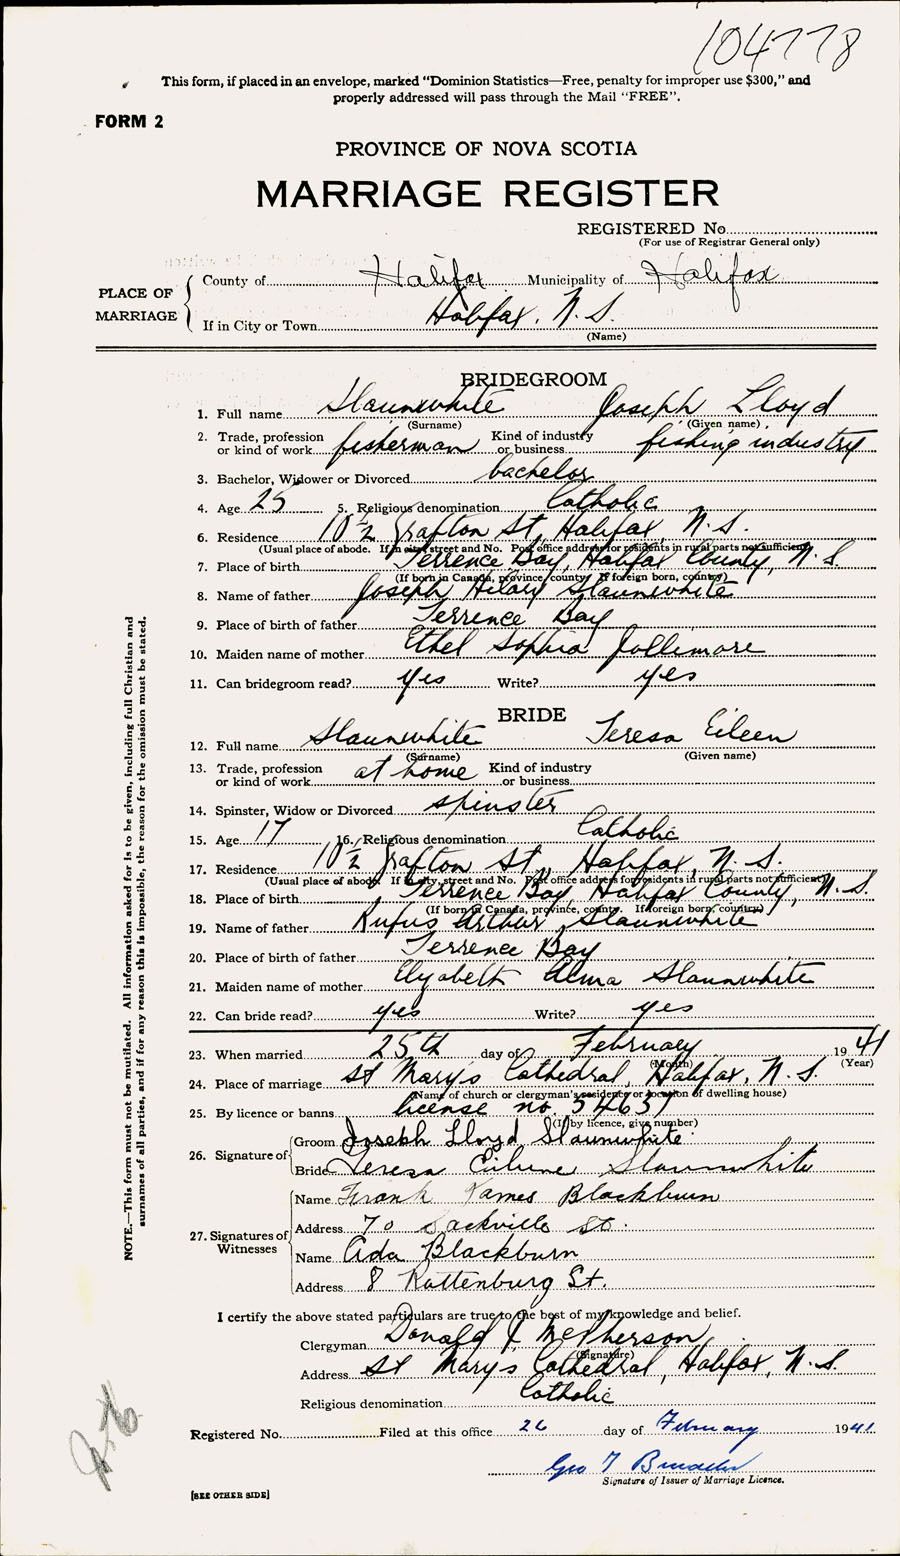 104778
This form, if placed in an envelope, marked “Dominion Statistics—Free, penalty for improper use $300,” and
properly addressed will pass through the Mail “FREE”.
FORM 2
PROVINCE OF NOVA SCOTIA
MARRIAGE REGISTER
REGISTERED No
(For use of Registrar General only)
PLACE OF MARRIAGE
County of Halifax Municipality of Halifax
If in City or Town Halifax, N.S.
(Name)
BRIDEGROOM
1. Full name Slaunwhite Joseph Lloyd
(Surname) (Given name)
2. Trade, profession or kind of work fisherman Kind of industry or business fishing industry
3. Bachelor, Widower or Divorced bachelor
4. Age 25 5. Religious denomination Catholic
6. Residence 10 1/2 Grafton St, Halifax, N.S.
(Usual place of abode. If in city, street and No. Post office address for residents in rural parts not sufficient)
7. Place of birth Terrence Bay, Halifax County, N.S.
(If born in Canada, province, county. If foreign born, country)
8. Name of father Joseph Hilary Slaunwhite
9. Place of birth of father Terrence Bay
10. Maiden name of mother Ethel Sophia Jollimore
11. Can bridegroom read? yes Write? yes
BRIDE
12. Full name Slaunwhite Teresa Eileen
(Surname) (Given name)
13. Trade, profession or kind of work at home Kind of industry or business
14. Spinster, Widow or Divorced spinster
15. Age 17 16. Religious denomination Catholic
17. Residence 10 1/2 Grafton St, Halifax N.S.
(Usual place of abode. If in city, street and No. Post office address for residents in rural parts not sufficient)
18. Place of birth Terrence Bay, Halifax County, N.S.
(If born in Canada, province, county. If foreign born, country)
19. Name of father Rufus Arthur Slaunwhite
20. Place of birth of father Terrence Bay
21. Maiden name of mother Elyabeth Alma Slaunwhite
22. Can bride read? yes Write? yes
23. When married 25th day of February 1941
(Month) (Year)
24. Place of marriage St Mary's Cathedral, Halifax, N.S.
(Name of church or clergyman's residence or location of dwelling house)
25. By licence or banns license no.
(If by licence, give number)
26. Signature of Groom Joseph Lloyd Slaunwhite
Bride Teresa Slaunwhite
27. Signatures of Witnesses
Name Frank James Blackburn
Address 70 Sackville St.
Name Ada Blackburn
Address 8 Rottenburg St.
I certify the above stated particulars are true to the best of my knowledge and belief.
Clergyman Donald J McPherson
(Signature)
Address St Mary's Cathedral, Halifax, N.S.
Religious denomination Catholic
Registered No. Filed at this office 26 day of February 1941
Geo T
Signature of Issuer of Marriage Licence.
[SEE OTHER SIDE]
NOTE.—This form must not be mutilated. All information asked for is to be given, including full Christian and
surnames of all parties, and if for any reason this is impossible, the reason for the omission must be stated.